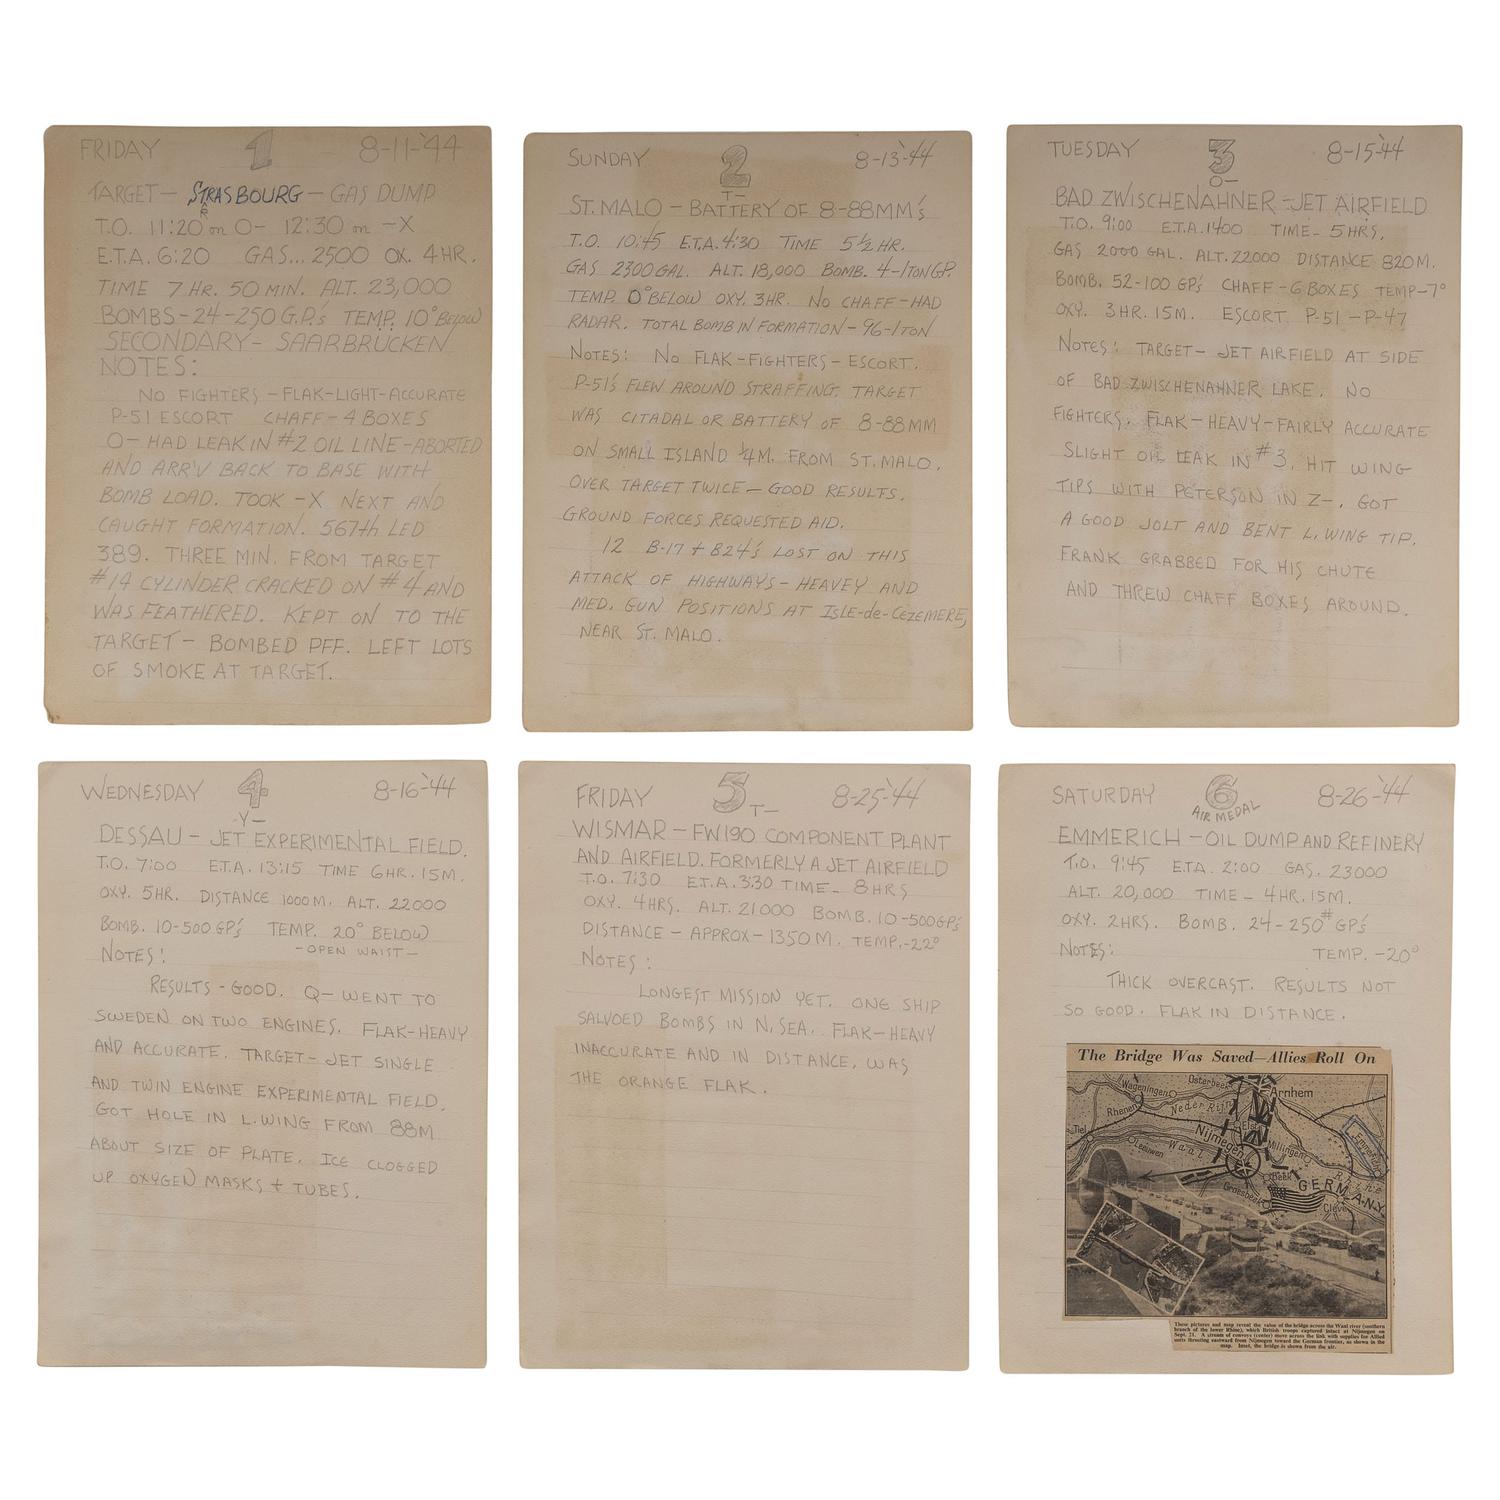 FRIDAY 1 8-11-'44
TARGET- STRASBOURG - GAS DUMP
T.O. 11:20 on O- 12:30 on -X
E.T.A. 6:20 GAS... 2500 OX. 4 HR.
TIME 7 HR. 50 MIN. ALT. 23,000
BOMBS-24-250 G.P.'s TEMP. 10° BELOW
SECONDARY- SAARBRUCKEN
NOTES:
NO FIGHTERS-FLAK-LIGHT-ACCURATE
P-51 ESCORT CHAFF-4 BOXES
O- HAD LEAK IN #2 OIL LINE-ABORTED
AND ARR'V BACK TO BASE WITH
BOMB LOAD. TOOK -X NEXT AND
CAUGHT FORMATION. 567th LED
389. THREE MIN. FROM TARGET
#14 CYLINDER CRACKED ON #4 AND
WAS FEATHERED. KEPT ON TO THE
TARGET- BOMBED PFF. LEFT LOTS
OF SMOKE AT TARGET.
SUNDAY 2 8-13-'44
T-
ST. MALO - BATTERY OF 8-88MM's
T.O. 10:45 E.T.A. 4:30 TIME 5½ HR.
GAS 2300 GAL. ALT. 18,000 BOMB. 4-1 TON GP.
TEMP. 0° BELOW OXY. 3HR. NO CHAFF-HAD
RADAR. TOTAL BOMB IN FORMATION-96-1 TON
NOTES: NO FLAK-FIGHTERS-ESCORT.
P-51's FLEW AROUND STRAFFING. TARGET
WAS CITADAL OR BATTERY OF 8-88MM
ON SMALL ISLAND ¼M. FROM ST. MALO.
OVER TARGET TWICE-GOOD RESULTS.
GROUND FORCES REQUESTED AID.
12 B-17 + B24's LOST ON THIS
ATTACK OF HIGHWAYS-HEAVEY AND
MED. GUN POSITIONS AT ISLE-de-CEZEMERE,
NEAR ST. MALO.
TUESDAY 3 8-15-'44
O-
BAD ZWISCHENAHNER-JET AIRFIELD
T.O. 9:00 E.T.A. 1400 TIME- 5HRS.
GAS 2000 GAL. ALT. 22000 DISTANCE 820M.
BOMB. 52-100 GP's CHAFF-6 BOXES TEMP-7°
OXY. 3HR. 15M. ESCORT P-51-P-47
NOTES: TARGET- JET AIRFIELD AT SIDE
OF BAD ZWISCHENAHNER LAKE. NO
FIGHTERS. FLAK-HEAVY-FAIRLY ACCURATE
SLIGHT OIL LEAK IN #3. HIT WING
TIPS WITH PETERSON IN Z-. GOT
A GOOD JOLT AND BENT L. WING TIP.
FRANK GRABBED FOR HIS CHUTE
AND THREW CHAFF BOXES AROUND.
WEDNESDAY 4 8-16-'44
Y-
DESSAU - JET EXPERIMENTAL FIELD.
T.O. 7:00 E.T.A. 13:15 TIME 6HR. 15M.
OXY. 5HR. DISTANCE 1000M. ALT. 22000
BOMB. 10-500 GP's TEMP. 20° BELOW
NOTES: -OPEN WAIST-
RESULTS-GOOD. Q-WENT TO
SWEDEN ON TWO ENGINES. FLAK-HEAVY
AND ACCURATE. TARGET-JET SINGLE
AND TWIN ENGINE EXPERIMENTAL FIELD.
GOT HOLE IN L. WING FROM 88M
ABOUT SIZE OF PLATE. ICE CLOGGED
UP OXYGEN MASKS + TUBES.
FRIDAY 5 8-25-'44
T-
WISMAR-FW190 COMPONENT PLANT
AND AIRFIELD. FORMERLY A JET AIRFIELD
T.O. 7:30 E.T.A. 3:30 TIME- 8HRS
OXY. 4HRS. ALT. 21000 BOMB. 10-500GP's
DISTANCE-APPROX-1350M. TEMP.-22°
NOTES:
LONGEST MISSION YET. ONE SHIP
SALVOED BOMBS IN N. SEA. FLAK-HEAVY
INACCURATE AND IN DISTANCE, WAS
THE ORANGE FLAK.
SATURDAY 6 8-26-'44
AIR MEDAL
EMMERICH-OIL DUMP AND REFINERY
T.O. 9:45 E.T.A. 2:00 GAS. 23000
ALT. 20,000 TIME-4HR. 15M.
OXY. 2HRS. BOMB. 24-250# GP's
NOTES: TEMP. -20°
THICK OVERCAST. RESULTS NOT
SO GOOD. FLAK IN DISTANCE.
The Bridge Was Saved—Allies Roll On
Wageningen Osterbeek Arnhem
Rhenen Neder Rijn
Tiel Elst Emmerich
Nijmegen Millingen
Leeuwen Waal Rhine
Beek GERMANY
Groesbeek Cleve
These pictures and map reveal the value of the bridge across the Waal river (southern
branch of the lower Rhine), which British troops captured intact at Nijmegen on
Sept. 21. A stream of convoys (center) move across the link with supplies for Allied
units thrusting eastward from Nijmegen toward the German frontier, as shown in the
map. Inset, the bridge is shown from the air.